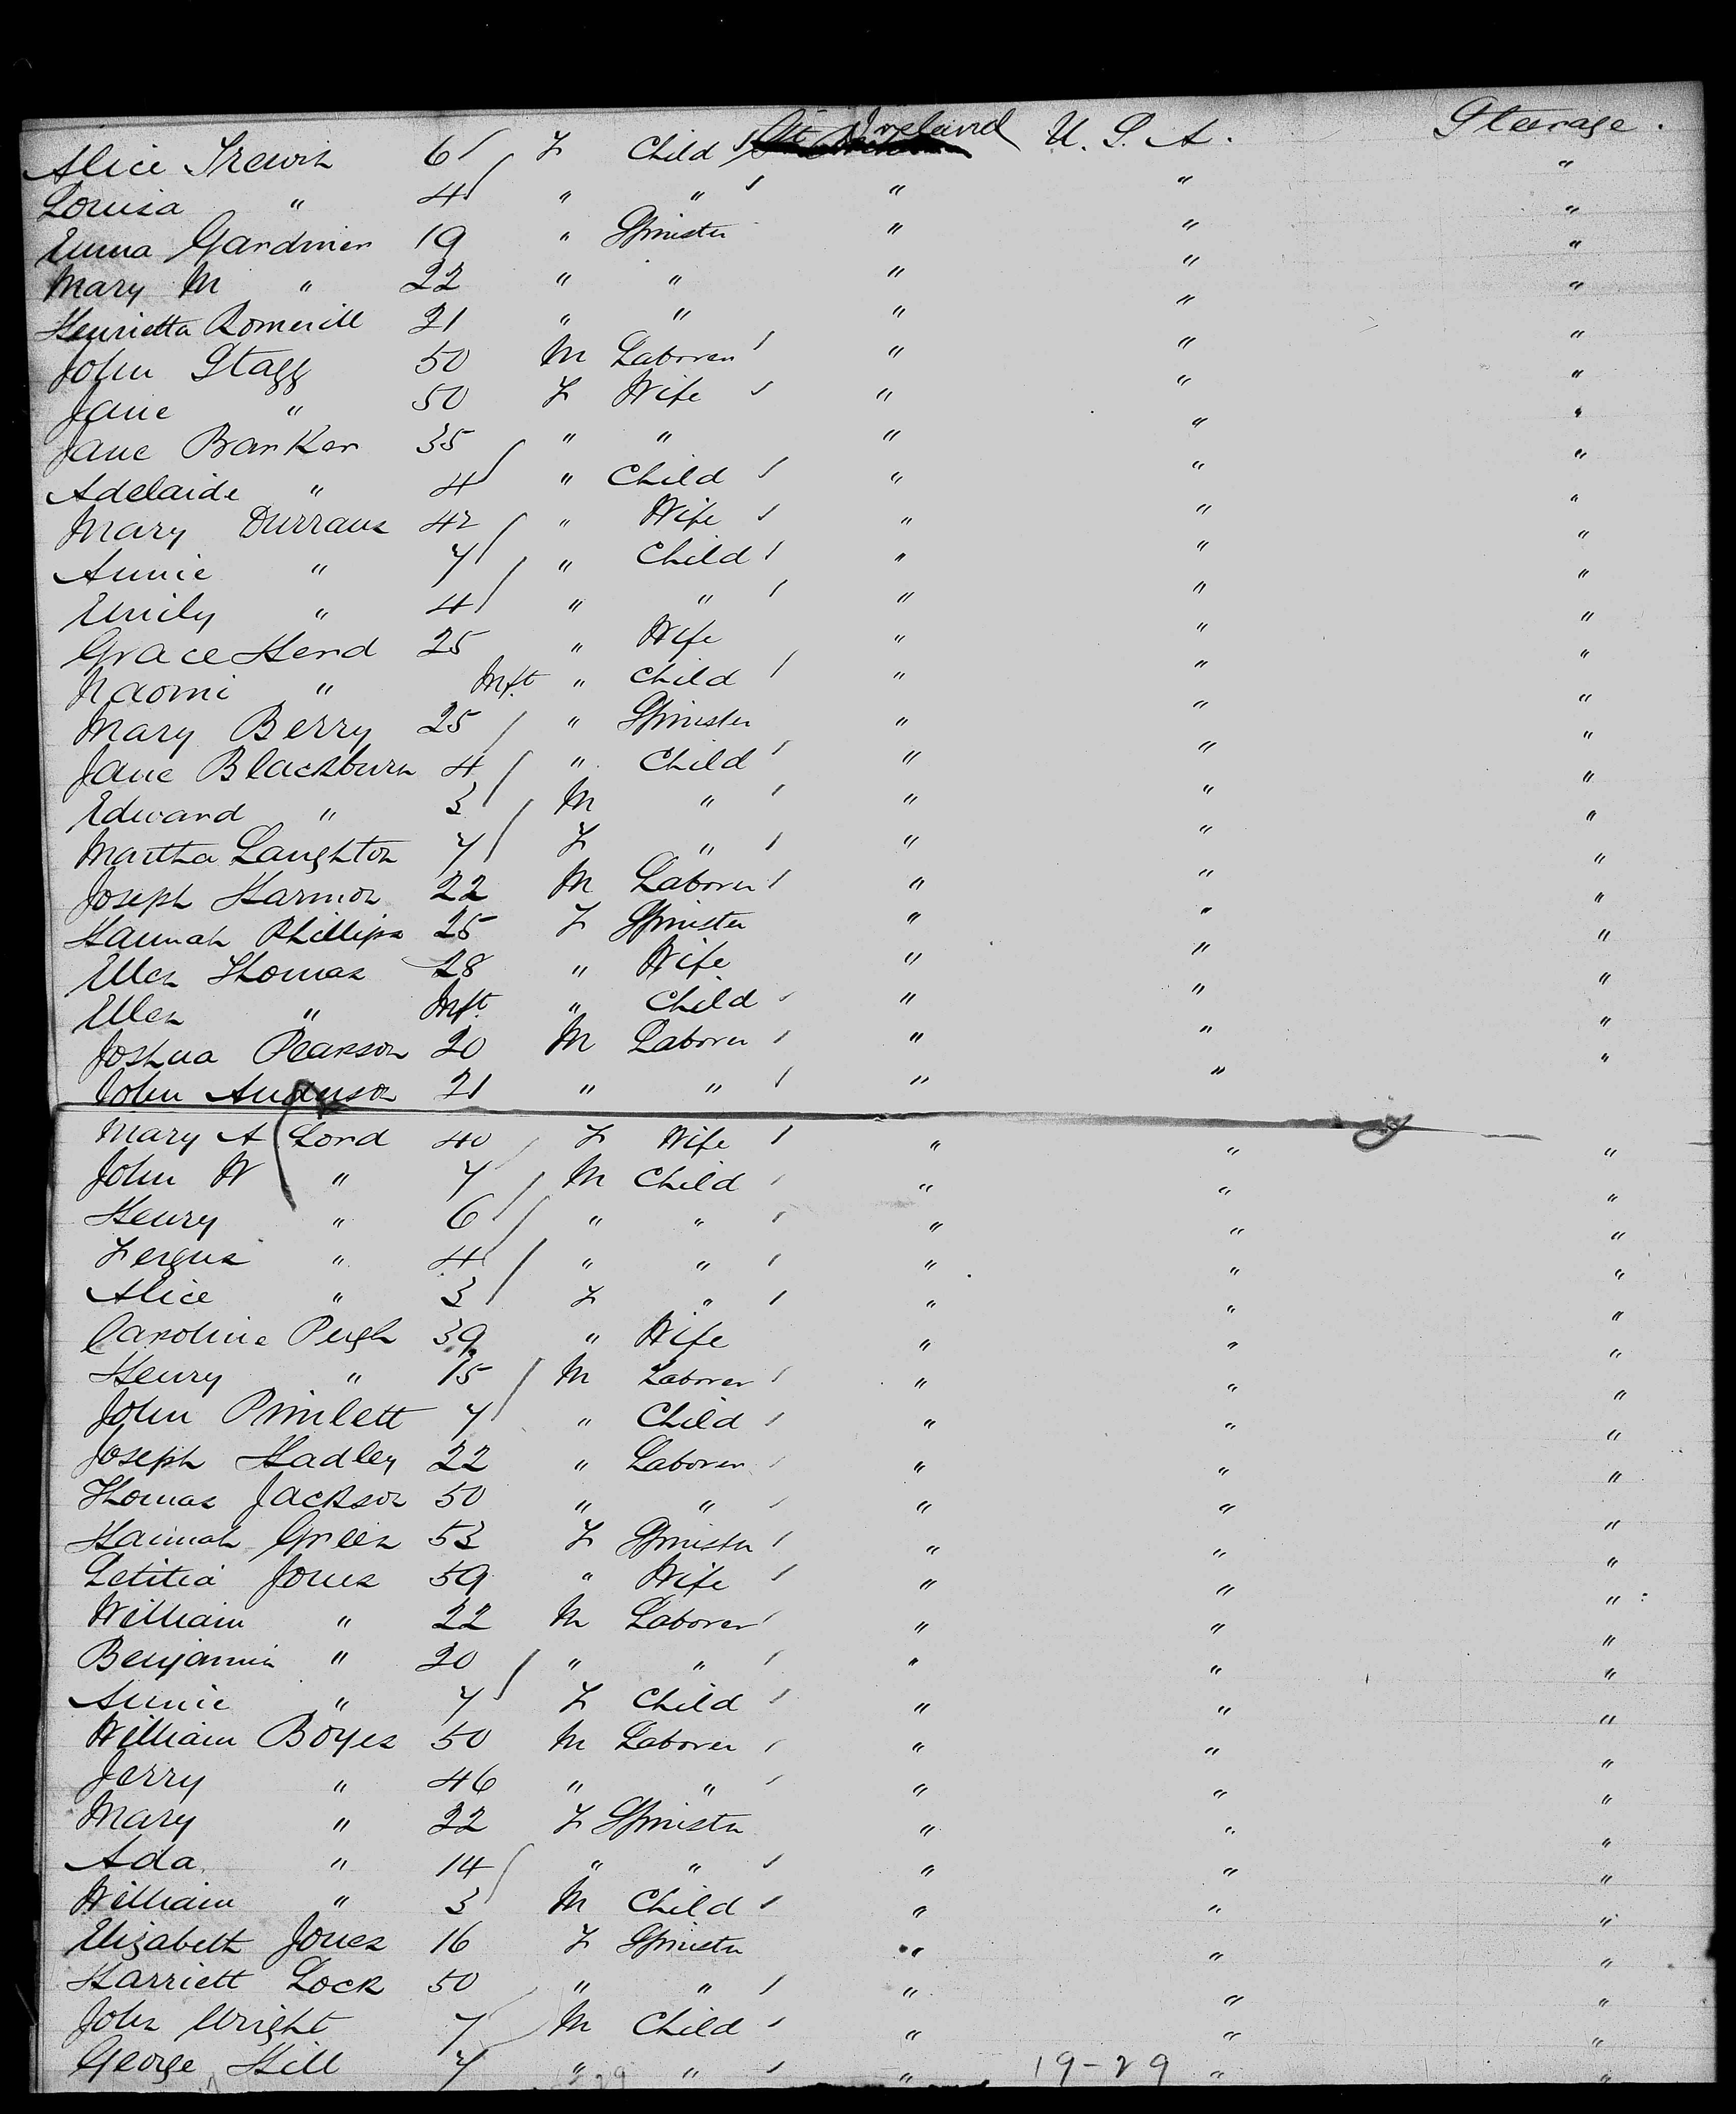 Alice Trewin 6 F Child Gt Ireland U. S. A. Steerage.
Louisa " 4 " " " " "
Emma Gardiner 19 " Spinster " " "
Mary M " 22 " " " " "
Henrietta Romerill 21 " " " " "
John Stagg 50 M Laborer " " "
Jane " 50 F Wife " " "
Jane Barker 35 " " " " "
Adelaide " 4 " Child " " "
Mary Durrans 42 " Wife " " "
Annie " 7 " Child " " "
Emily " 4 " " " " "
Grace Herd 25 " Wife " " "
Naomi " Inft " Child " " "
Mary Berry 25 " Spinster " " "
Jane Blackburn 4 " Child " " "
Edward " 3 M " " " "
Martha Laughton 7 F " " " "
Joseph Harmon 22 M Laborer " " "
Hannah Phillips 25 F Spinster " " "
Ellen Thomas 28 " Wife " " "
Ellen " Inft " Child " " "
Joshua Pearson 20 M Laborer " " "
John Anderson 21 " " " " "
Mary A Lord 40 F Wife " " "
John W " 7 M Child " " "
Henry " 6 " " " " "
Fergus " 4 " " " " "
Alice " 3 F " " " "
Caroline Pugh 39 " Wife " " "
Henry " 15 M Laborer " " "
John Pimlett 7 " Child " " "
Joseph Hadley 22 " Laborer " " "
Thomas Jackson 50 " " " " "
Hannah Green 53 F Spinster " " "
Letitia Jones 59 " Wife " " "
William " 22 M Laborer " " "
Benjamin " 20 " " " " "
Annie " 7 F Child " " "
William Boyes 50 M Laborer " " "
Jerry " 46 " " " " "
Mary " 22 F Spinster " " "
Ada " 14 " " " " "
William " 3 M Child " " "
Elizabeth Jones 16 F Spinster " " "
Harriett Lock 50 " " " " "
John Wright 7 M Child " " "
George Hill 7 " " " 19-29 " "